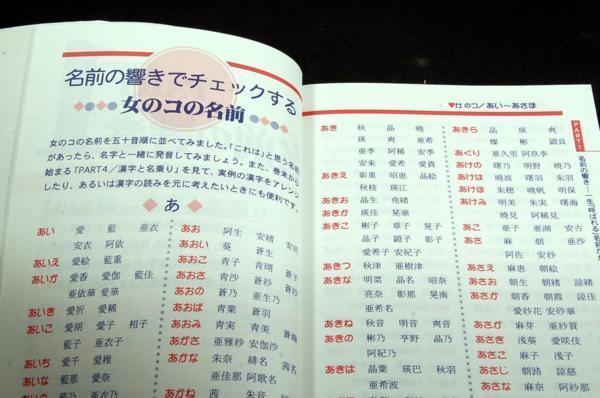 名前の響きでチェックする
女のコの名前
女のコの名前を五十音順に並べてみました。「これは」と思う名前
があったら、名字と一緒に発音してみましょう。また、巻末から
始まる「PART4／漢字と名乗り」を見て、実例の漢字をアレンジ
したり、あるいは漢字の読みを元に考えたいときにも便利です。
あ
あい 愛 藍 亜衣
安衣 阿依
あいえ 愛絵 藍重
あいか 愛香 愛伽 藍佳
亜依華 愛華
あいき 愛祈 愛稀
あいこ 愛胡 愛子 相子
藍子 亜衣子
あいち 愛千 愛稚
あいな 藍那 愛奈
あいの 藍乃 亜衣乃
あお 阿生 安緒
あおい 葵 蒼生
あおこ 青子 青瑚 蒼子
あおさ 青沙 蒼紗
あおの 蒼乃 亜生乃
あおば 青葉 蒼羽
あおみ 青実 青美 蒼海
あがさ 亜雅紗 安伽沙
あかな 朱奈 緋名 茜名
亜佳那 阿歌名
あかね 茜 朱音
♥女のコ／あい〜あさほ
あき 秋 晶 暁
瑛 爽
亜季 阿稀 安季
安来 愛希 愛貴
あきえ 彰重 昭恵 晶絵
秋枝 瑛江
あきお 晶生 堯緒
あきか 瑛佳 晃華
あきこ 彬子 章子 晃子
晶子 顕子 彰子
愛希子 安紀子
あきつ 秋津 亜樹津
あきな 明菜 晶名 昭奈
亮奈 彰那 晃南
亜希菜
あきね 秋音 明音 爽音
あきの 彬乃 亨野 晶乃
阿紀乃
あきは 晶葉 瑛巴 秋羽
亜希波
あきら 晶 瑛 爽
燦 彬 顕良
あぐり 亜久里 阿玖李
あけの 曙乃 明野 暁乃
あけは 暁波 曙羽 朱羽
あけほ 朱穂 暁帆 明保
あけみ 明美 朱実 曙海
暁見 阿稀見
あこ 亜子 亜湖 安古
あさ 麻 朝 亜沙
阿佐 安紗
あさえ 麻恵 朝絵
あさお 朝生 朝緒 諒緒
あさか 朝香 朝霞 諒佳
愛紗花 安砂華
あさが 麻芽 亜紗賀
あさき 浅葵 愛咲伎
あさこ 麻子 浅子
あさじ 朝路 諒慈
あさな 麻奈 阿紗那
PART1
名前の響き